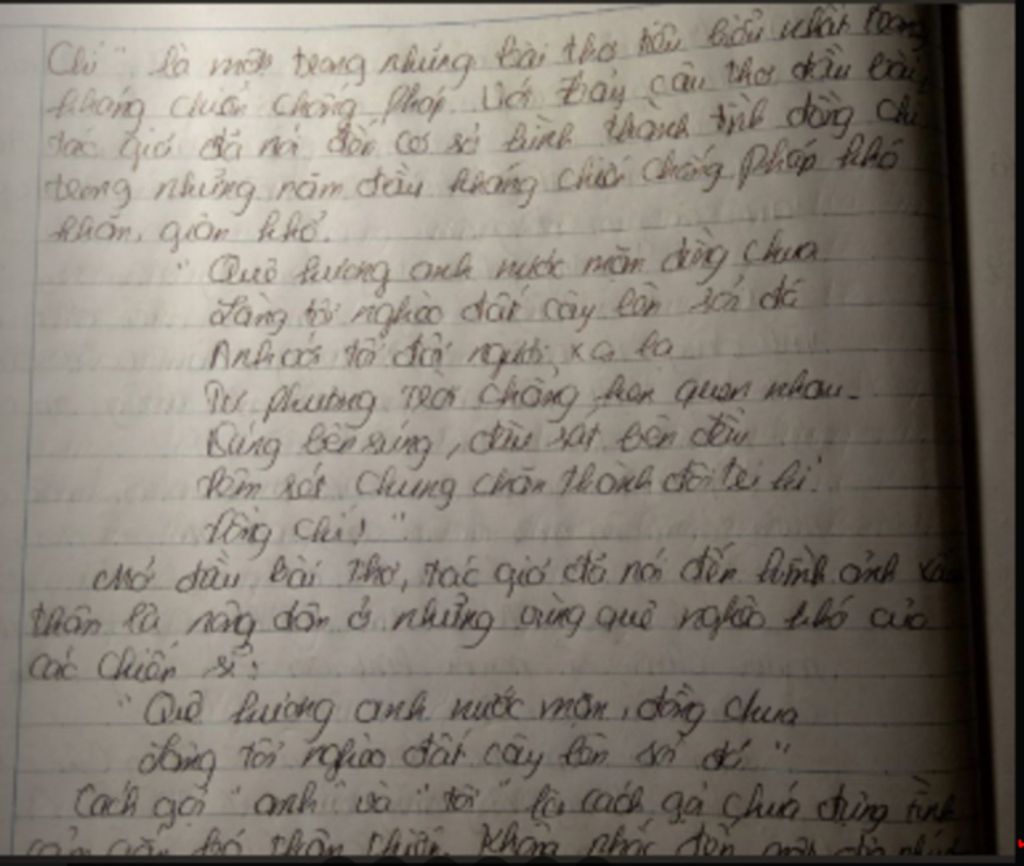 Chí" là một trong những bài thơ tiêu biểu nhất trong
kháng chiến chống Pháp. Với bảy câu thơ đầu bài,
tác giả đã nói đến cơ sở hình thành tình đồng chí
trong những năm đầu kháng chiến chống Pháp khó
khăn, gian khổ.
" Quê hương anh nước mặn đồng chua
Làng tôi nghèo đất cày lên sỏi đá
Anh với tôi đôi người xa lạ
Từ phương trời chẳng hẹn quen nhau.
Súng bên súng, đầu sát bên đầu
Đêm rét chung chăn thành đôi tri kỉ.
Đồng chí! "
Mở đầu bài thơ, tác giả đã nói đến hình ảnh xuất
thân là nông dân ở những vùng quê nghèo khó của
các chiến sĩ:
" Quê hương anh nước mặn, đồng chua
Làng tôi nghèo đất cày lên sỏi đá "
Cách gọi " anh " và " tôi " là cách gọi chứa đựng tình
cảm gắn bó thân thiết. Không nhắc đến một địa